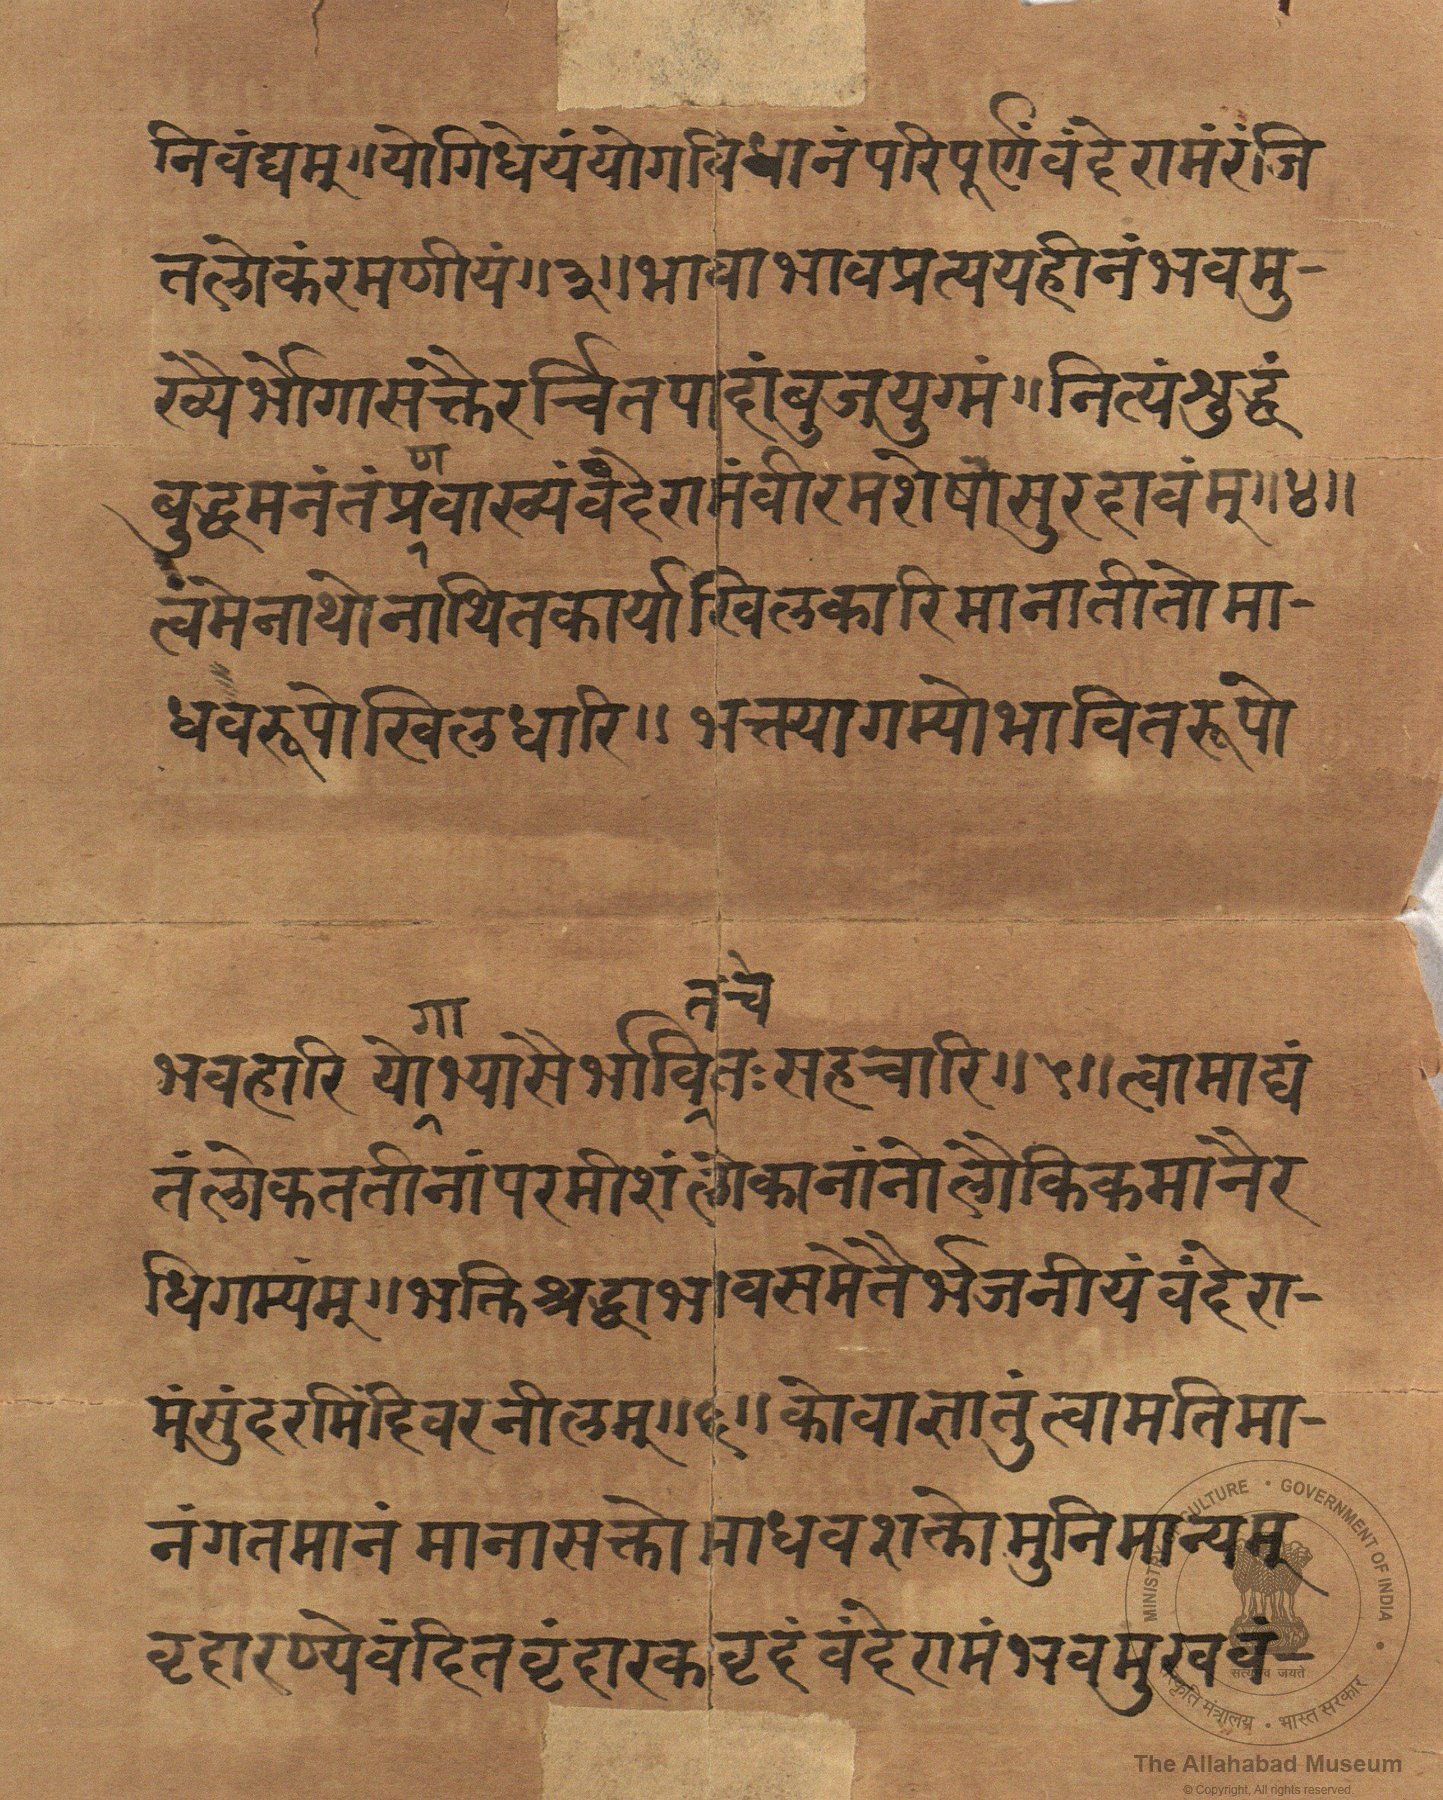 निवंद्यम्॥योगिधेयंयोगविधानंपरिपूर्णंवंदेरामंरंजि
तलोकंरमणीयं॥३॥भावाभावप्रत्ययहीनंभवमु-
ख्यैर्भोगासक्तैरर्च्चितपादांबुजयुग्मं॥नित्यंश्रुद्धं
ण
बुद्धमनंतंप्रवाख्यंवंदेरामंवीरमशेषासुरहावंम्॥४॥
त्वंमेनाथोनाथितकार्याखिलकारिमानातीतोमा-
धवरूपोखिलधारि॥ भक्त्यागम्योभावितरूपो
गा तच्चे
भवहारि योभ्यासैर्भावितःसहचारि॥५॥त्वामाद्यं
तंलोकततीनांपरमीशंलोकानांनोलौकिकमानैर
धिगम्यंम्॥भक्तिश्रद्धाभावसमेतैर्भजनीयंवंदेरा-
मंसुंदरमिंदिवरनीलम्॥६॥कोवाज्ञातुंत्वामतिमा-
नंगतमानं मानासक्तोमाधवशक्तोमुनिमान्यम्
वृदारण्येवंदितवृंदारकवृदं वंदेरामंभवमुखवं-
MINISTRY OF CULTURE • GOVERNMENT OF INDIA
सत्यमेव जयते
संस्कृति मंत्रालय • भारत सरकार
The Allahabad Museum
© Copyright, All rights reserved.